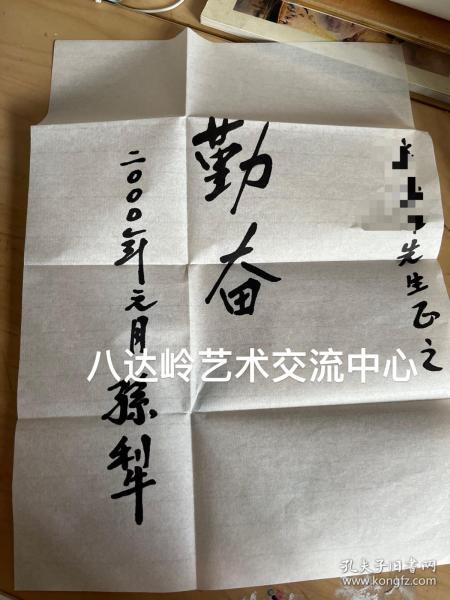 先生正之
勤奋
二〇〇〇年元月
孫犁
八达岭艺术交流中心
孔夫子旧书网
www.kongfz.com